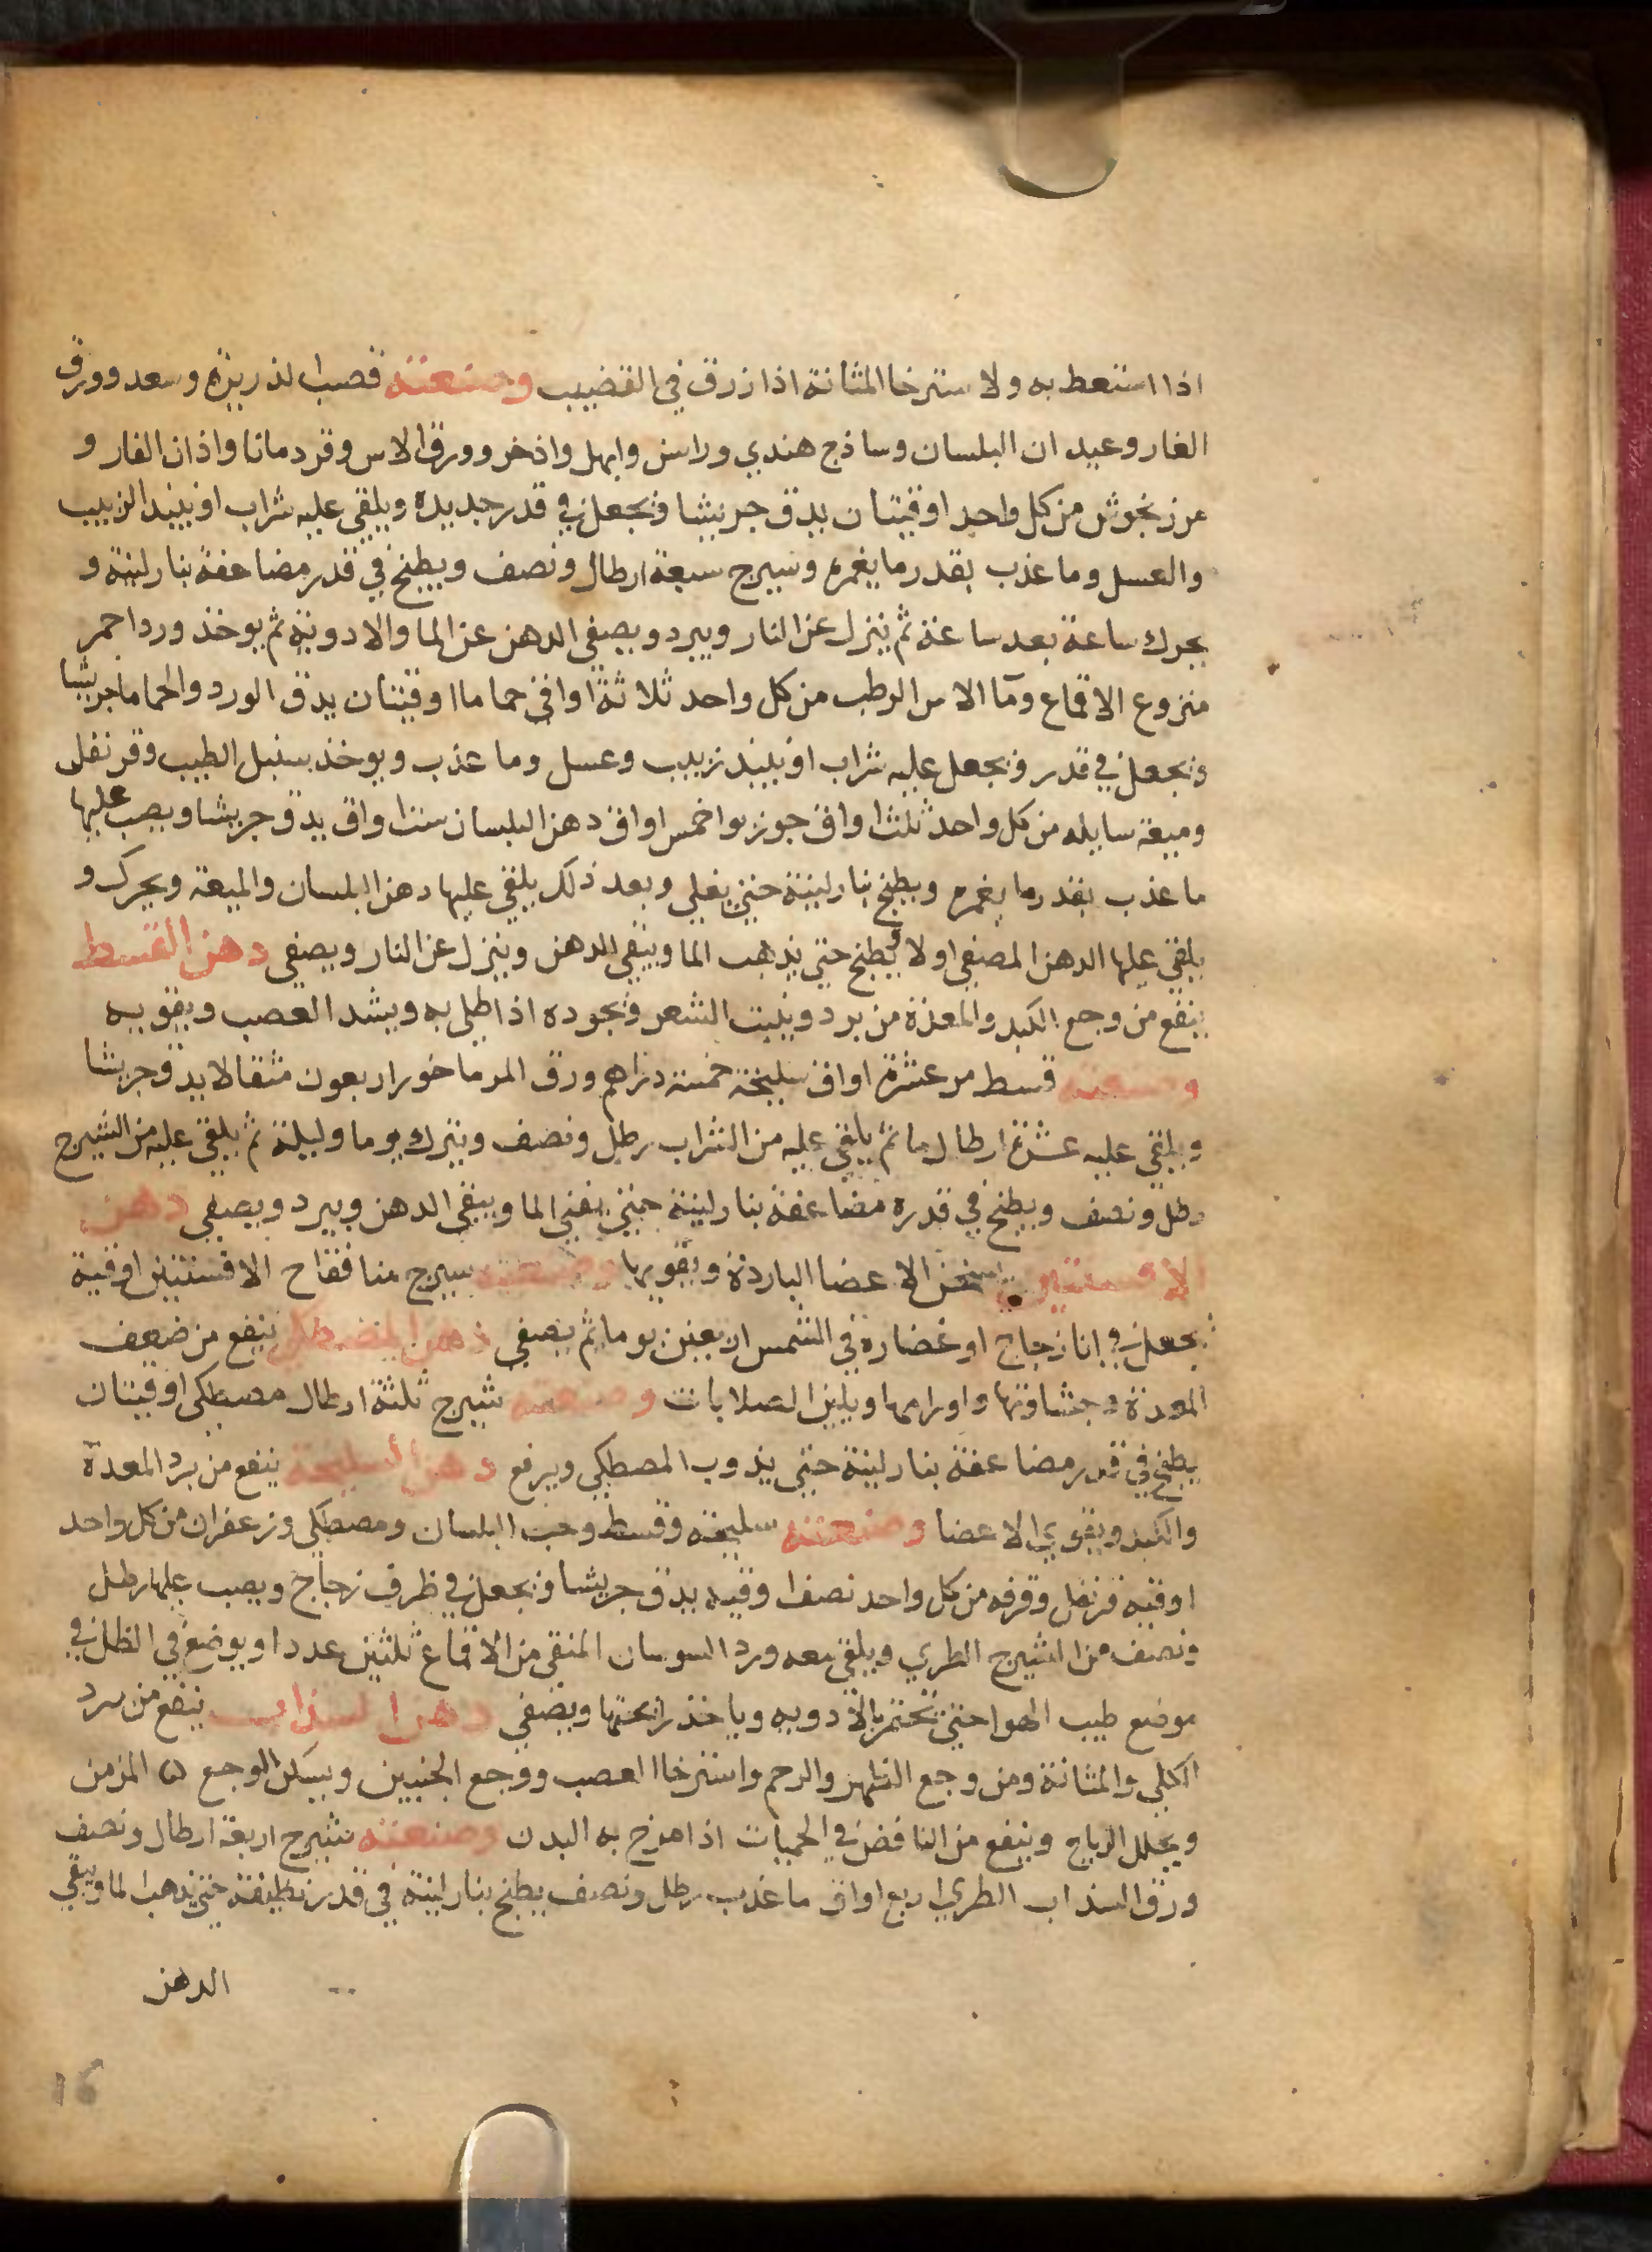 اذا استعط به ولاسترخا المثانة اذا زرق في القضيب وصنعته قصب الذريرة وسعد وورق
الغار وعيدان البلسان وساذج هندي وراسن وابهل واذخر وورق الاس وقردمانا واذان الفار و
مرزنجوش من كل واحد اوقيتان يدق جريشا ويجعل في قدر جديده ويلقي عليه شراب او نبيذ الزبيب
والعسل وما عذب بقدر ما يغمره وشيرج سبعة ارطال ونصف ويطبخ في قدر مضاعفة بنار لينة و
يحرك ساعة بعد ساعة ثم ينزل عن النار ويبرد ويصفي الدهن عن الما والادوية ثم يوخذ ورد احمر
منزوع الاقماع وما الاس الرطب من كل واحد ثلاثة اواقي حماما اوقيتان يدق الورد والحماما جريشا
ويجعل في قدر ويجعل عليه شراب او نبيذ زبيب وعسل وما عذب ويوخذ سنبل الطيب وقرنفل
وميعة سايله من كل واحد ثلث اواق جوز بوا خمس اواق دهن البلسان ست اواق يدق جريشا ويصب عليها
ما عذب بقدر ما يغمره ويطبخ بنار لينة حتي يغلي وبعد ذلك يلقي عليها دهن البلسان والميعة ويحرك و
يلقي عليها الدهن المصفي اولا ويطبخ حتي يذهب الما ويبقي الدهن وينزل عن النار ويصفي دهن القسط
ينفع من وجع الكبد والمعدة من برد وينبت الشعر ويجوده اذا طلي به ويشد العصب ويقويه
وصنعته قسط مر عشرة اواق سليخة خمسة دراهم ورق المرماخور اربعون مثقالا يدق جريشا
ويلقي عليه عشرة ارطال ما ثم يلقي عليه من الشراب رطل ونصف ويترك يوما وليلة ثم يلقي عليه من الشيرج
رطل ونصف ويطبخ في قدره مضاعفة بنار لينة حتي يفني الما ويبقي الدهن ويبرد ويصفي دهن
الافسنتين يسخن الاعضا الباردة ويقويها وصنعته شيرج منا فقاح الافسنتين اوقية
يجعل في انا زجاج او غضاره في الشمس اربعين يوما ثم يصفي دهن المصطكي ينفع من ضعف
المعدة وجشاوتها واورامها ويلين الصلابات وصنعته شيرج ثلثة ارطال مصطكي اوقيتان
يطبخ في قدر مضاعفة بنار لينة حتي يذوب المصطكي ويرفع دهن السليخة ينفع من برد المعدة
والكبد ويقوي الاعضا وصنعته سليخة وقسط وحب البلسان ومصطكي وزعفران من كل واحد
اوقيه قرنفل وقرفه من كل واحد نصف اوقيه يدق جريشا ويجعل في ظرف زجاج ويصب عليها رطل
ونصف من الشيرج الطري ويلقي معه ورد السوسان المنقي من الاقماع ثلثين عددا ويوضع في الظل في
موضع طيب الهوا حتي تختمر بالادويه وياخذ رايحتها ويصفي دهن السذاب ينفع من برد
الكلي والمثانة ومن وجع الظهر والرحم واسترخاا العصب ووجع الجنبين ويسكن الوجع المزمن
ويحلل الرياح وينفع من النافض في الحميات اذا مرخ به البدن وصنعته شيرج اربعة ارطال ونصف
ورق السذاب الطري اربع اواق ما عذب رطل ونصف يطبخ بنار لينة في قدر نظيفة حتي يذهب الما ويبقي
الدهن
16